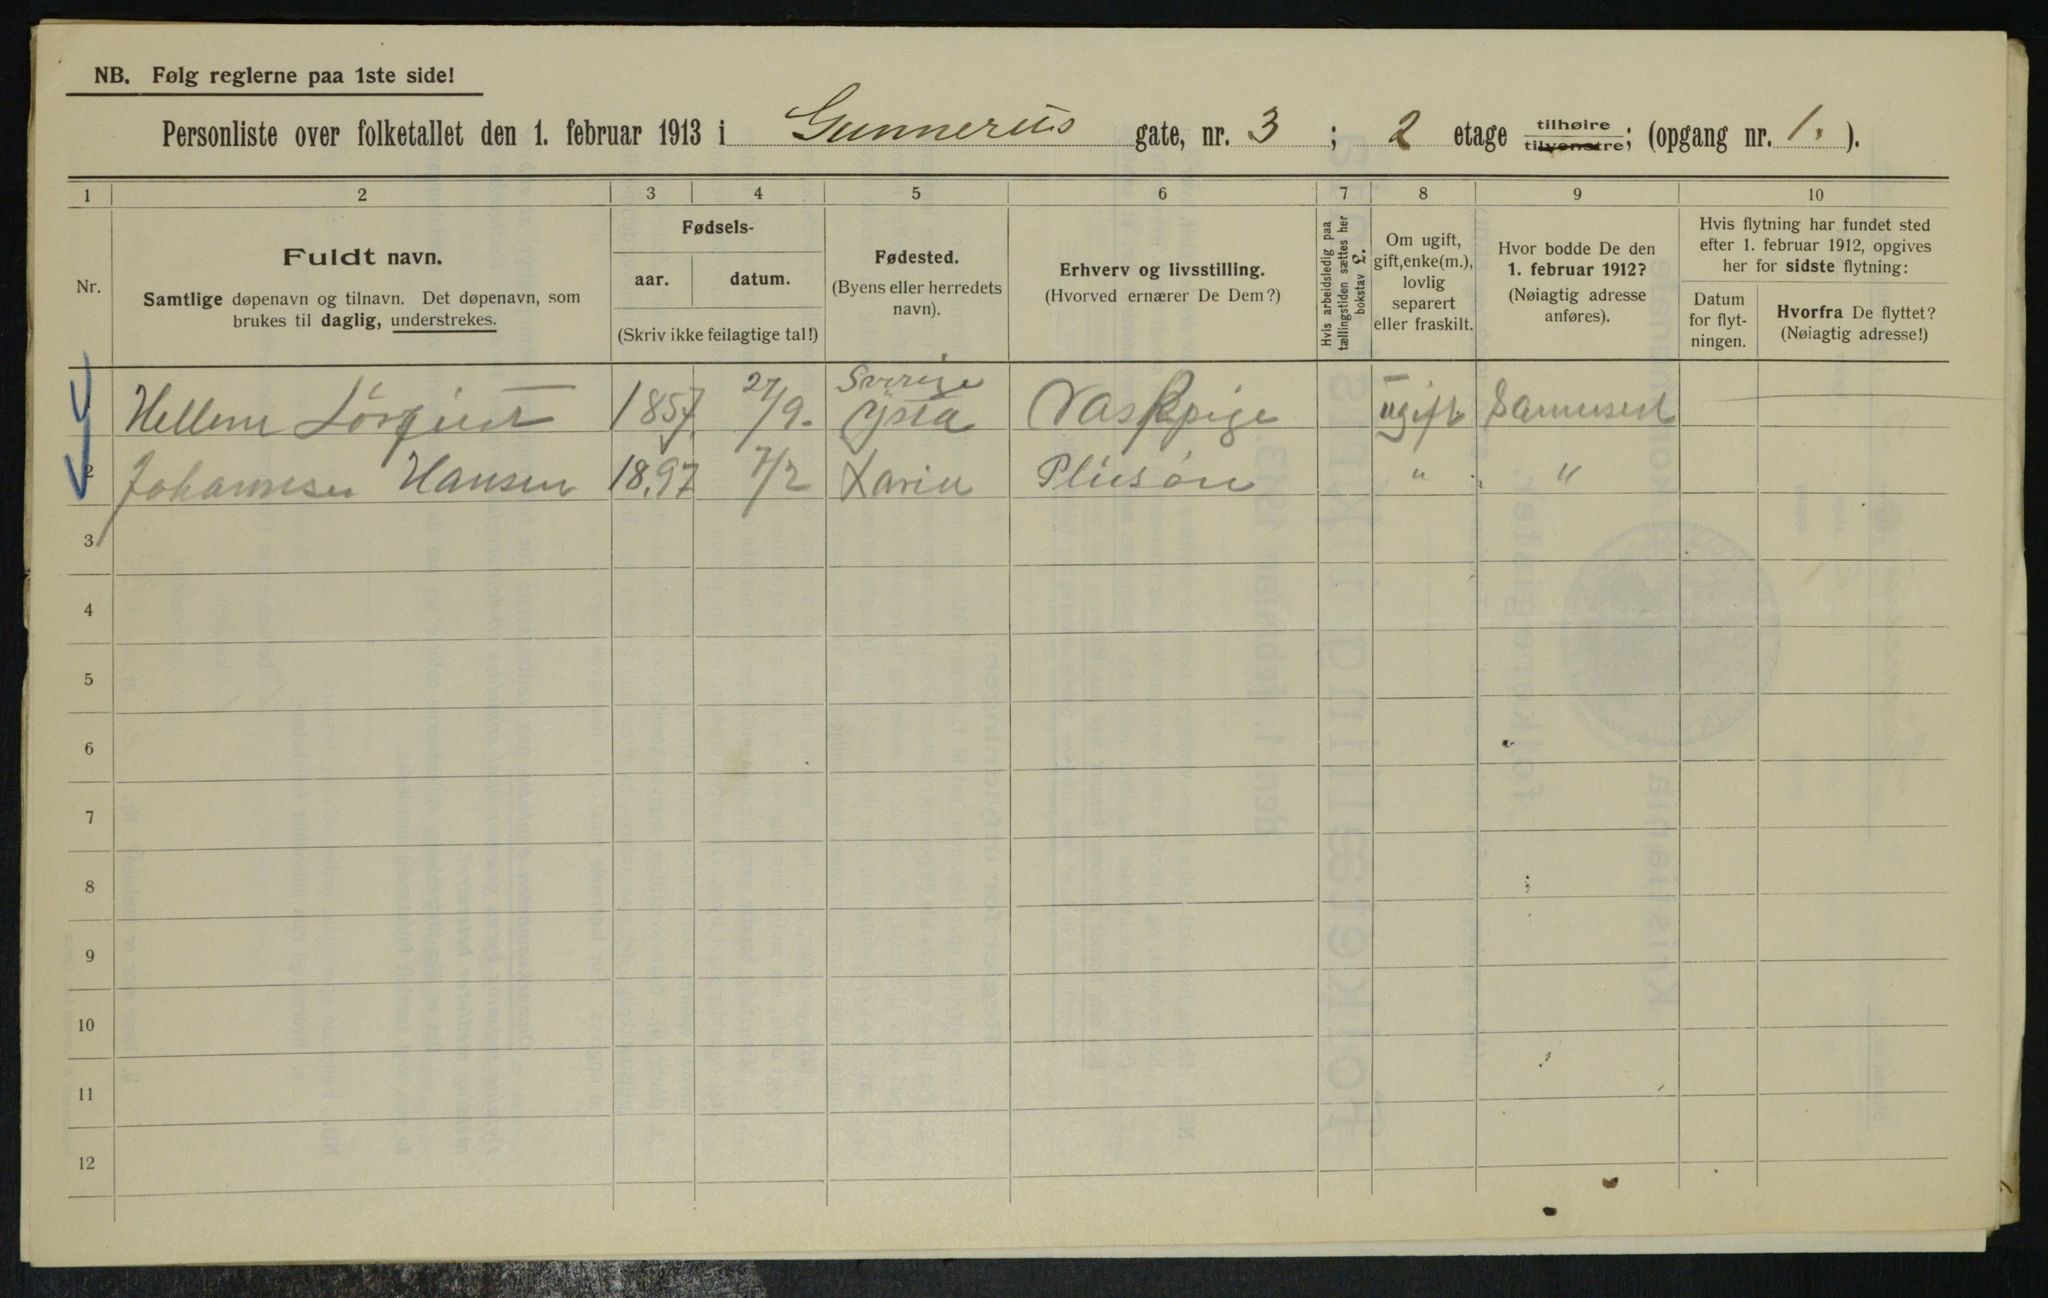 NB. Følg reglerne paa 1ste side!
Personliste over folketallet den 1. februar 1913 i Gunnerus gate, nr. 3 ; 2 etage tilhøire tilvenstre; (opgang nr. 1. ).
1 2 3 4 5 6 7 8 9 10
Nr.
Fuldt navn.
Samtlige døpenavn og tilnavn. Det døpenavn, som
brukes til daglig, understrekes.
Fødsels-
aar. datum.
(Skriv ikke feilagtige tal!)
Fødested.
(Byens eller herredets
navn).
Erhverv og livsstilling.
(Hvorved ernærer De Dem?)
Hvis arbeidsledig paa
tællingstiden sættes her
bokstav L.
Om ugift,
gift, enke(m.),
lovlig
separert
eller fraskilt.
Hvor bodde De den
1. februar 1912?
(Nøiagtig adresse
anføres).
Hvis flytning har fundet sted
efter 1. februar 1912, opgives
her for sidste flytning:
Datum
for flyt-
ningen.
Hvorfra De flyttet?
(Nøiagtig adresse!)
Sverige
Hellene 1857 27/9. Ysta Vaskpige ugift Sammested
2 Johannesen Hansen 1897 7/2 " "
3
4
5
6
7
8
9
10
11
12